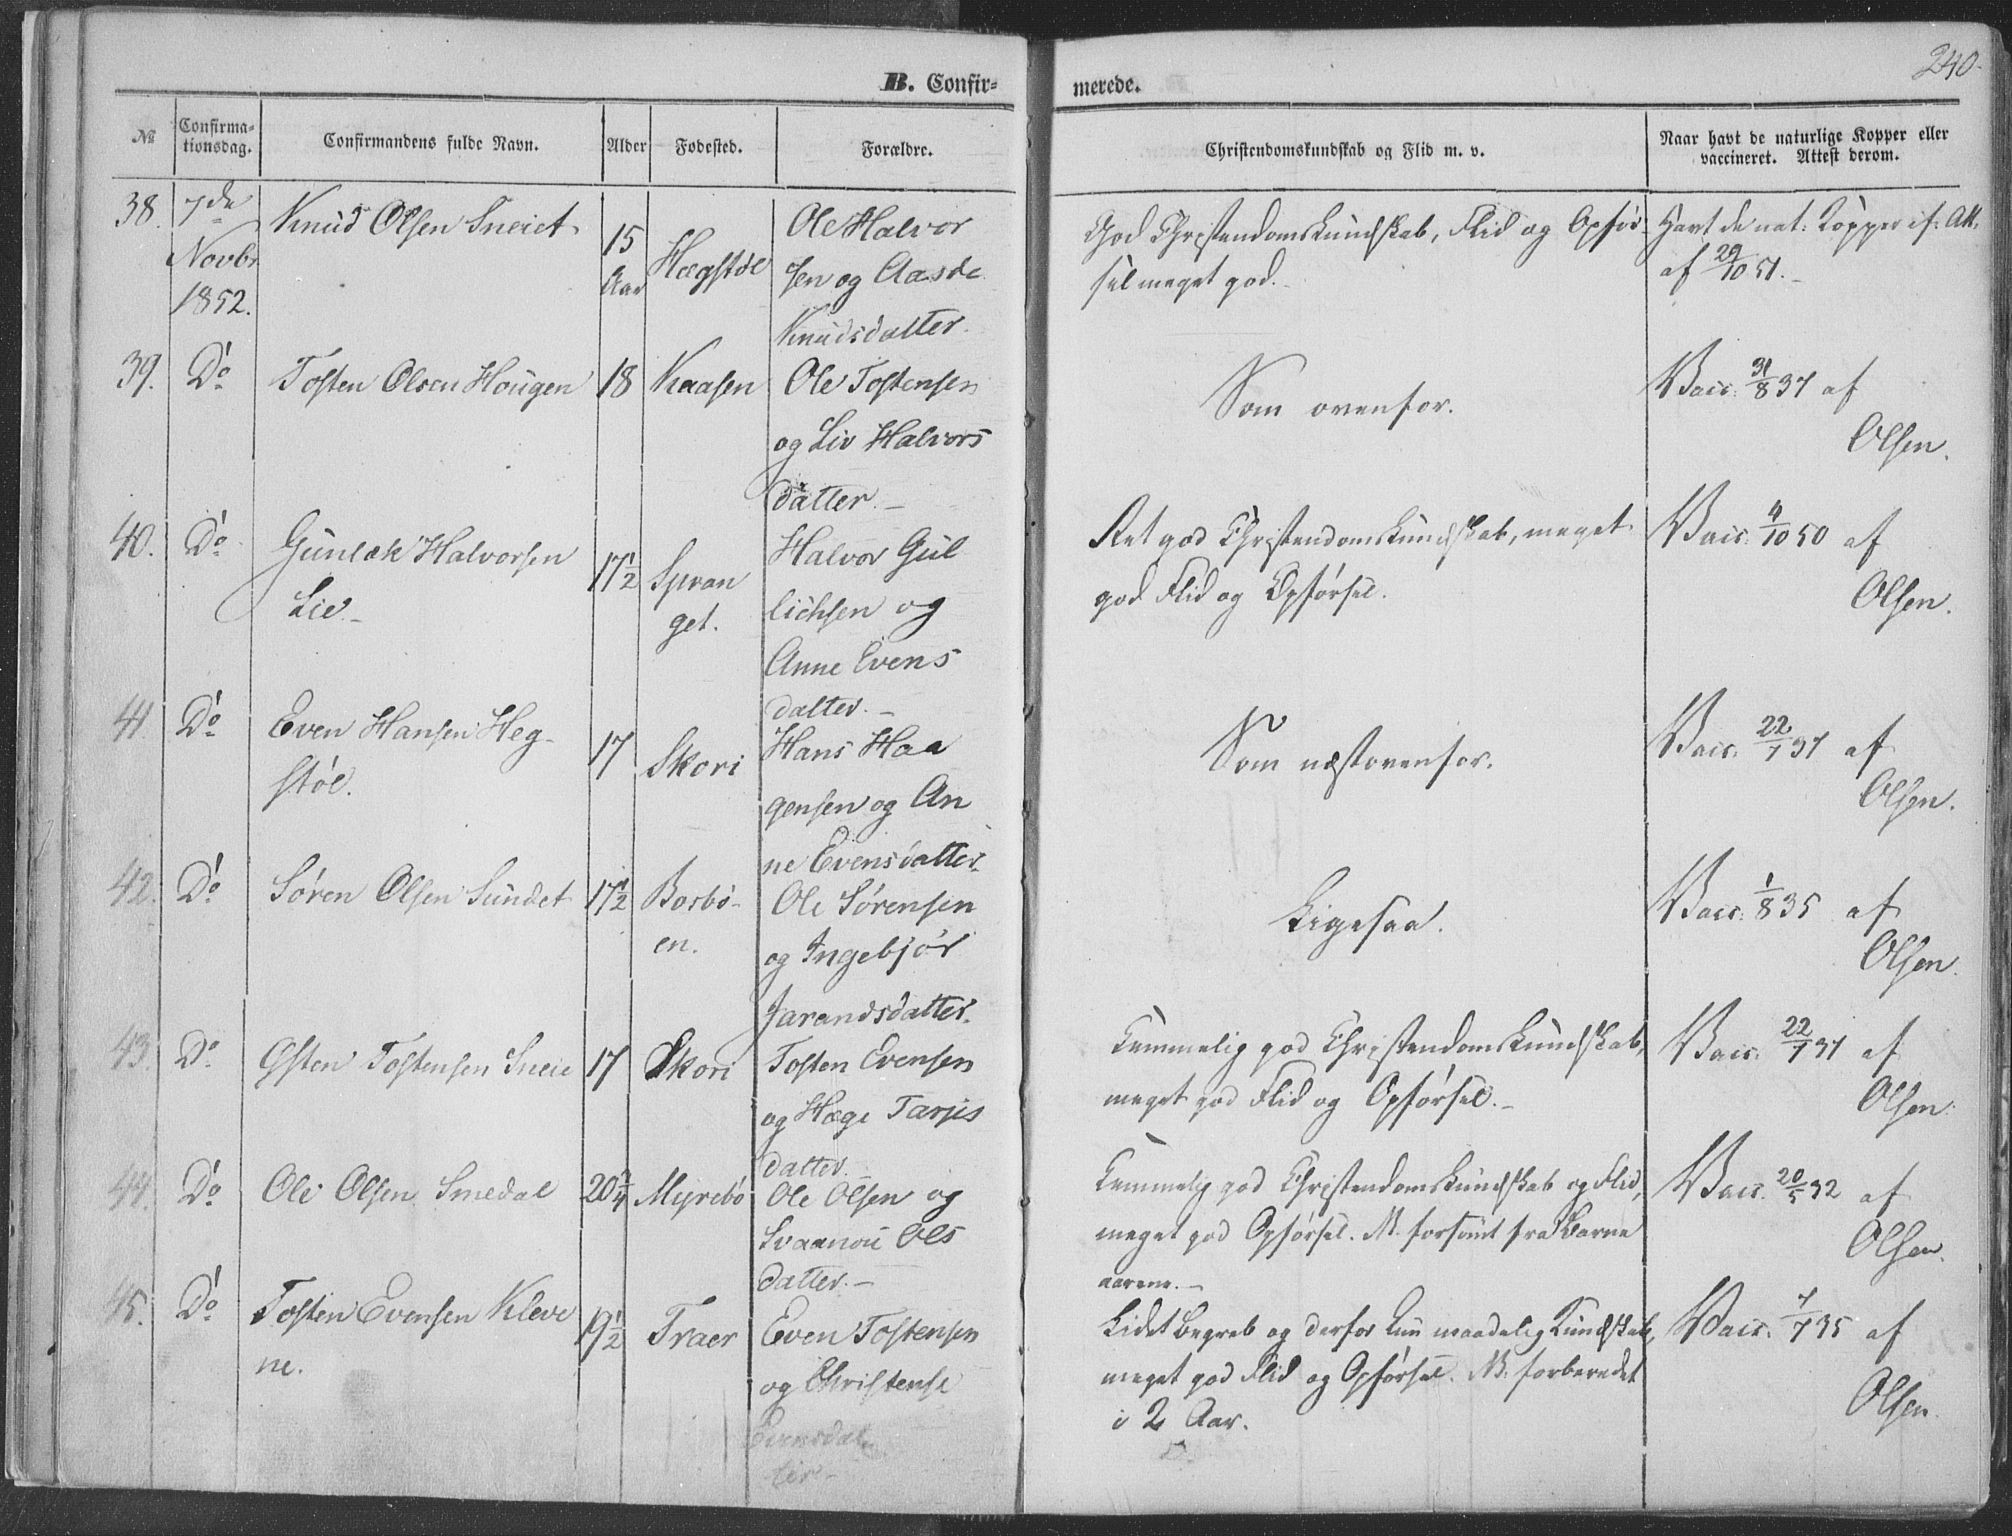 240.
B. Confir-
merede.
No
Confirma-
tionsdag.
Confirmandens fulde Navn.
Alder
Fødested.
Forældre.
Christendomskundskab og Flid m. v.
Naar havt de naturlige Kopper eller
vaccineret. Attest derom.
38.
7de
Novbr
1852.
Knud Olsen Sneiet
15
Aar
Hægstøl
Ole Halvor
sen og Aasde
Knudsdatter.
God Christendomskundskab, Flid og Opfør-
sel meget god.
Havt de nat: Kopper if: Att.
af 29/10 51.
39.
Do
Tosten Olsen Hougen
18
Kaasen
Ole Tostensen
og Liv Halvors
datter. -
Som ovenfor.
Vacc: 31/8 37 af
Olsen.
40.
Do
Gunlek Halvorsen
Lie. -
17 1/2
Spran
get.
Halvor Gul
lichsen og
Anne Evens
datter. -
Ret god Christendomskundskab, meget
god Flid og Opførsel.
Vacc: 4/10 50 af
Olsen.
41.
Do
Even Hansen Heg-
støl.
17
Skori
Hans Haa
gensen og An
ne Evensdatter.
Som næstovenfor.
Vacc: 22/7 37 af
Olsen.
42.
Do
Søren Olsen Sundet
17 1/2
Bosbø-
en.
Ole Sørensen
og Ingebjør
Jarandsdatter.
Ligesaa.
Vacc: 1/8 35 af
Olsen.
43.
Do
Østen Tostensen Sneie
17
Skori
Tosten Evensen
og Hæge Tarjes
datter.
Temmelig god Christendomskundskab,
meget god Flid og Opførsel. -
Vacc: 22/7 37 af
Olsen.
44.
Do
Ole Olsen Smedal
20 3/4
Myrebø
Ole Olsen og
Svaanou Ols
datter. -
Temmelig god Christendomskundskab og Flid,
meget god Opførsel. N. forsømt fra Barne
aarene. -
Vacc: 20/5 32 af
Olsen.
45.
Do
Tosten Evensen Kleve
ne.
19 1/2
Traer
Even Tostensen
og Christense
Evensdat
ter -
Lidet Begreb og derfor kun maadelig Kundskab,
meget god Flid og Opførsel. N. forberedet
i 2 Aar.
Vacc: 7/7 35 af
Olsen.